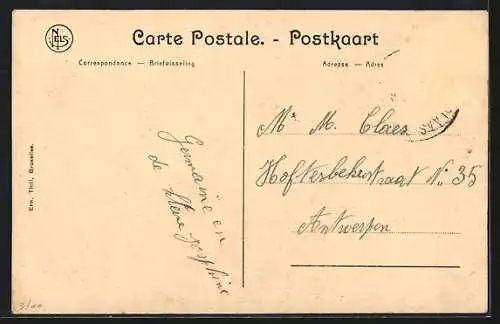 NELS
Carte Postale. - Postkaart
Correspondance — Briefwisseling
Adresse — Adres
Ern. Thill, Bruxelles.
Germaine en
de kleine Josephine
Mr M. Claes
Hofterbekestraat No 35
Antwerpen